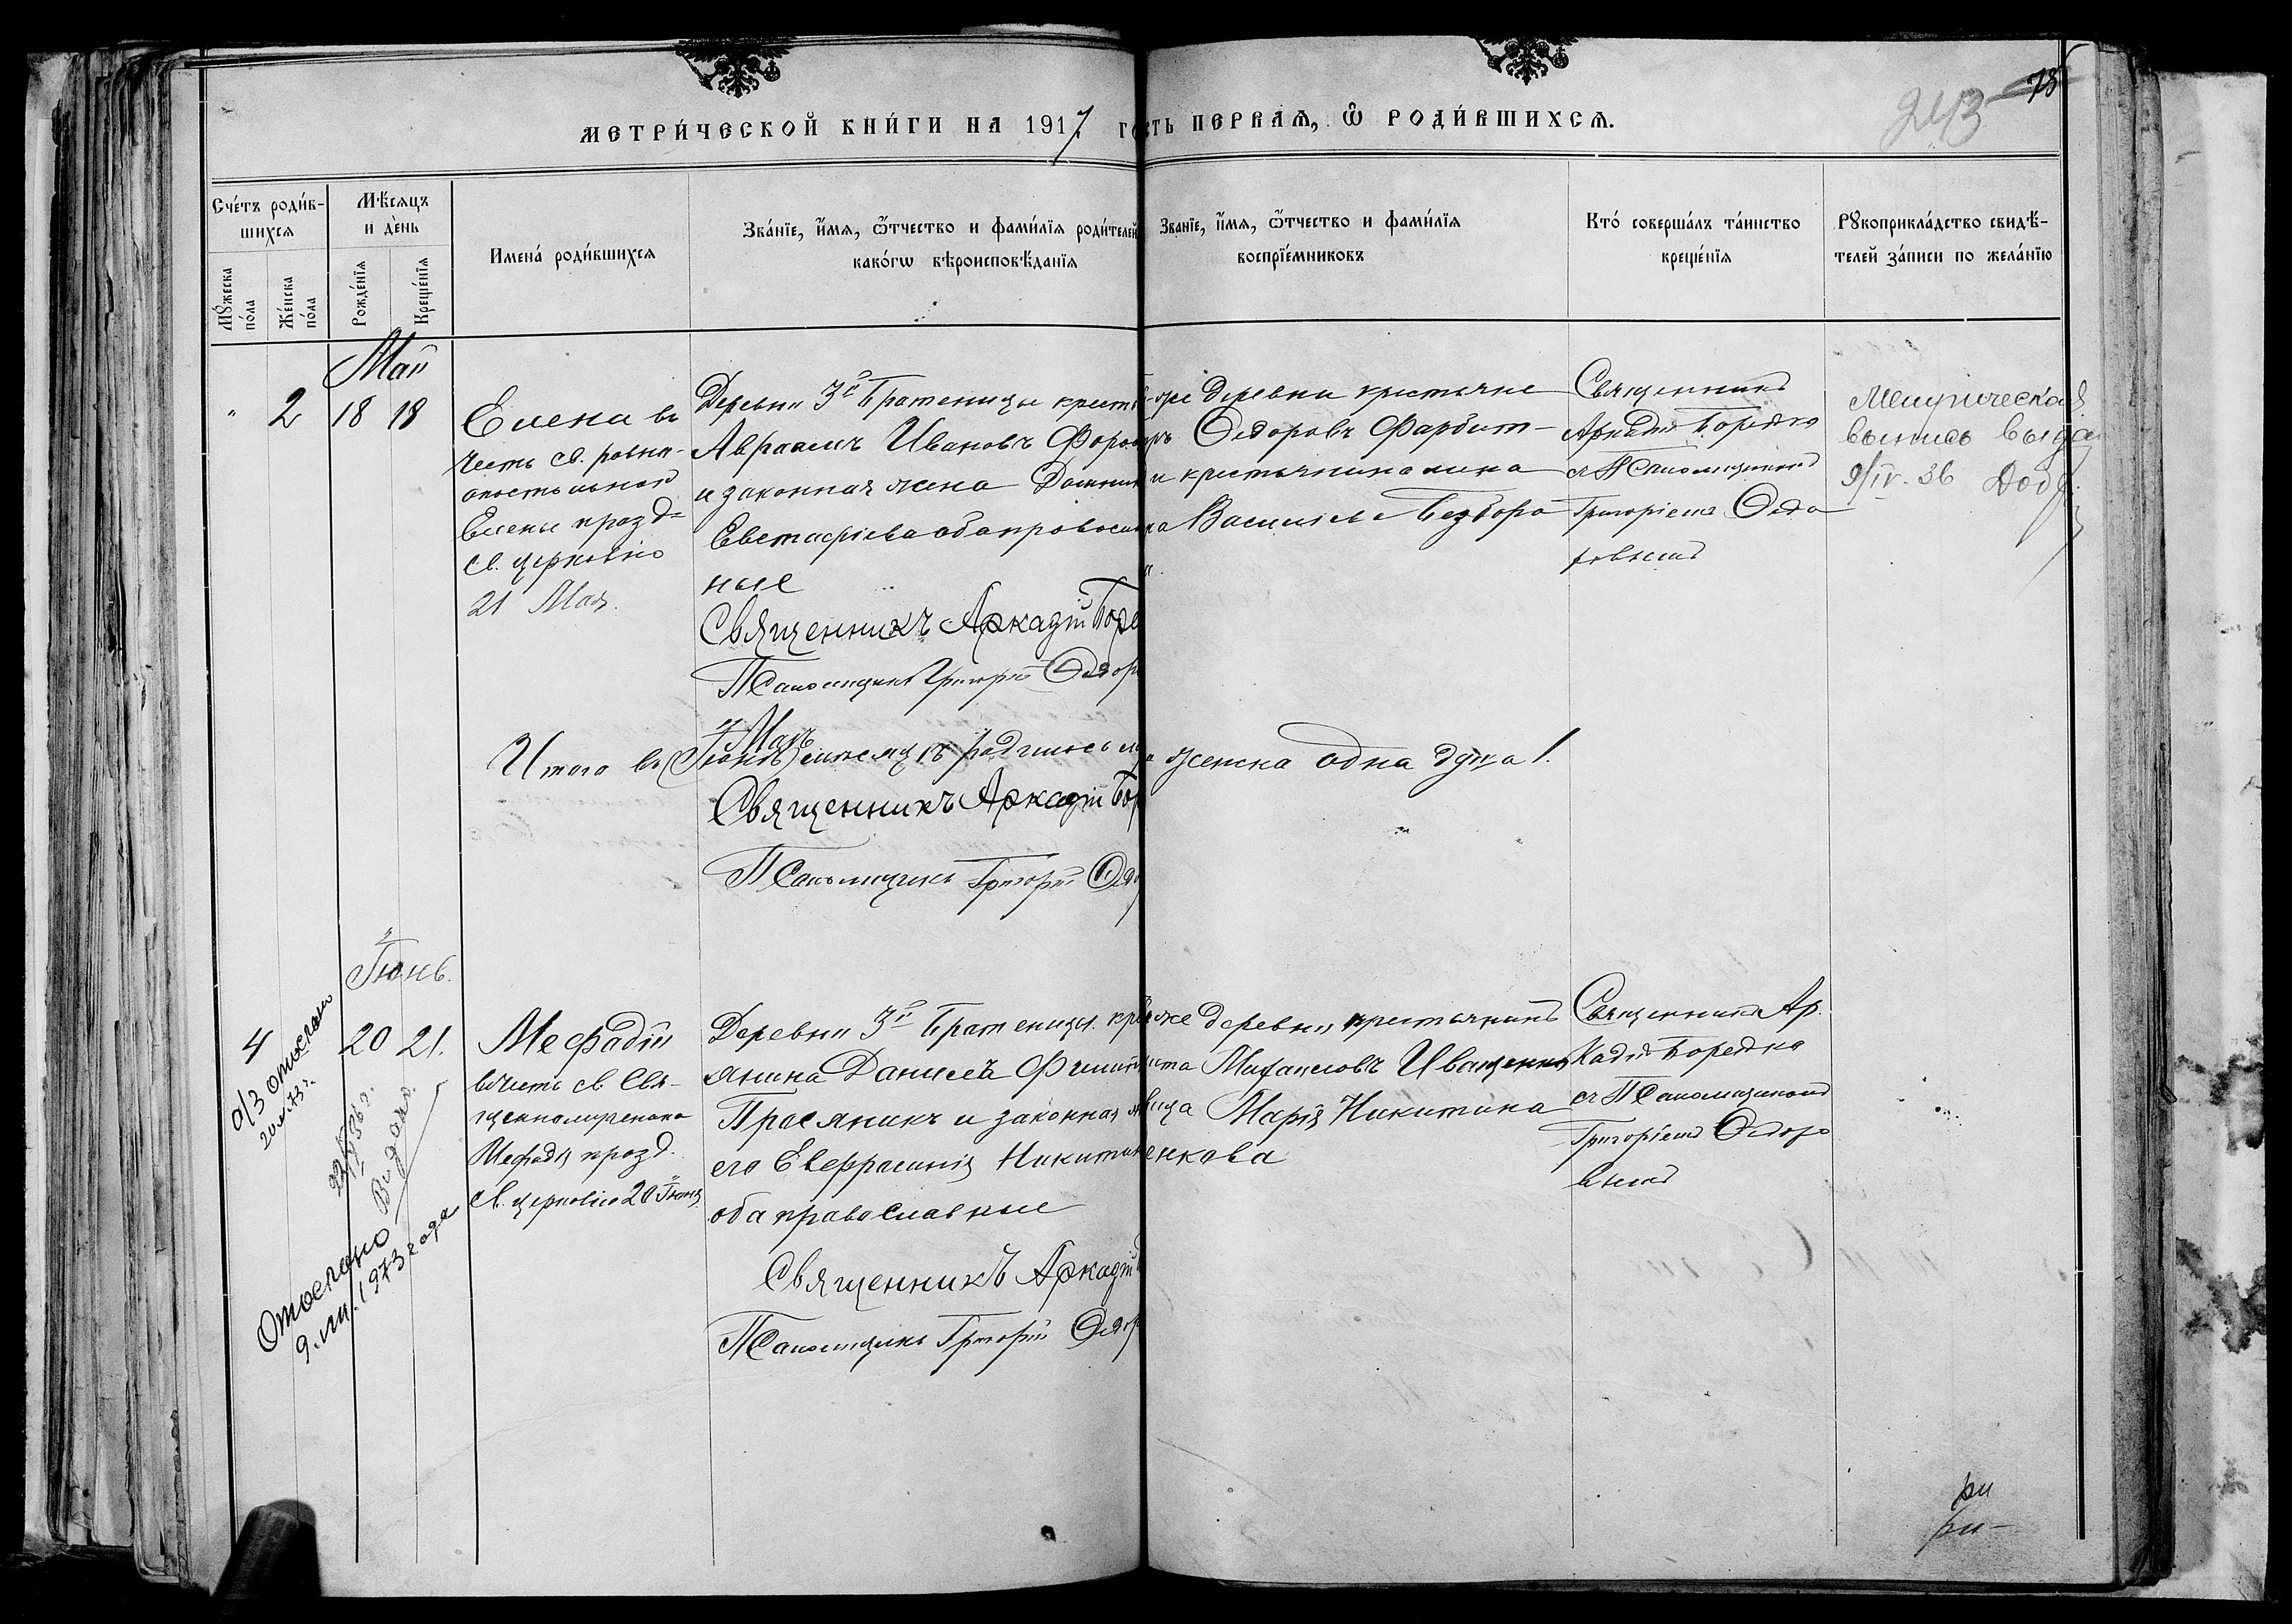 МЕТРИ́ЧЕСКОЙ КНИ́ГИ НА 1917 ГО
СТЬ ПЕРВАЯ, Ѿ РОДИ́ВШИХСЯ.
243
78
Сче́тъ роди́в-
шихся
Му́жеска
по́ла
Же́нска
по́ла
Мѣ́сяцъ
и де́нь
Рожде́нїя
Креще́нїя
Имена́ роди́вшихся
Зва́нїе, и́мя, ѻ҆́тчество и фами́лїя роди́телей
како́гѡ вѣроисповѣ́данїя
Зва́нїе, и́мя, ѻ҆́тчество и фами́лїя
воспрїе́мниковъ
Кто́ соверша́лъ та́инство
креще́нїя
Рꙋкоприкла́дство свидѣ́-
телей за́писи по жела́нїю
Май
" 2 18 18
Елена въ
честь св. равно-
апостольной
Елены празд-
св. церковію
21 Мая.
Деревни 3й Братеницы крестья
Авраамъ Ивановъ
и законная жена
Евстафіева оба православ
ные
Священникъ Аркадій Боре
Псаломщикъ Григорій Ѳедор
же деревни крестьяне
Ѳедоровъ
и крестьянина
Васильева
Священникъ
Аркадій Боредко
съ Псаломщикомъ
Григоріемъ Ѳедо
ровымъ
Метрическая
выпись выда
9/IV-36
Маѣ
Итого въ (Іюнѣ) мѣсяцѣ родилось м
" женска одна душа 1.
Священникъ Аркадій Бор
Псаломщикъ Григорій Ѳед
Іюнь.
4 20 21.
Мефадій
в честь св Свя-
щенномученика
Мефадія празд.
св. церковію 20 Іюня
Деревни 3й Братеницы кре
янина Даніилъ Филип
Просяникъ и законная
его Евфрасинія Никитин
оба православные
Священникъ Аркадій
Псаломщикъ Григорій Ѳедор
же деревни крестьянинъ
Михаиловъ Иващенко
Марія Никитина
енкова
Священникъ Ар-
кадій Боредко
съ Псаломщикомъ
Григоріемъ Ѳедоро
вымъ
о/з отослан
Видано
Отослано
9.VIII.1973 года